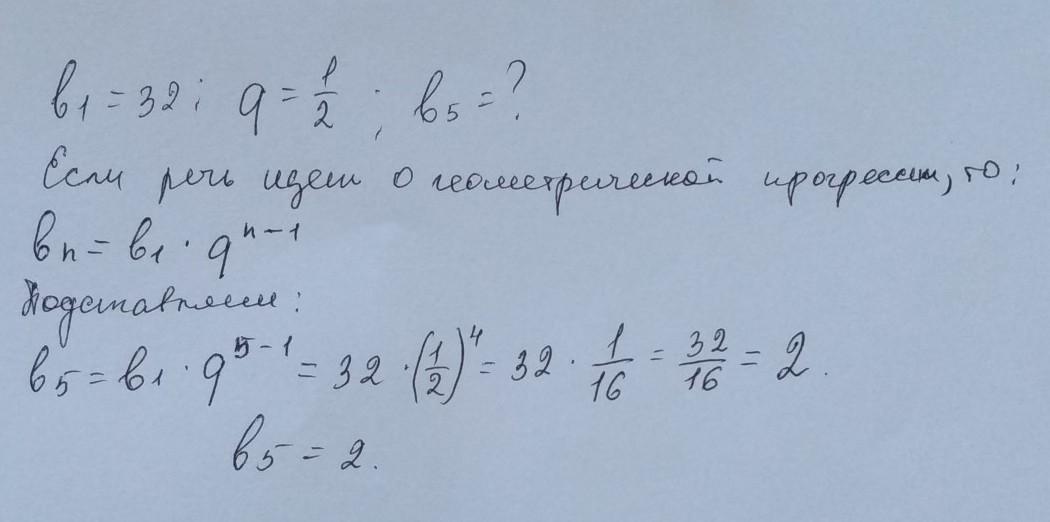 b₁ = 32; q = 1/2; b₅ = ?
Если речь идет о геометрической прогрессии, то:
bₙ = b₁ · qⁿ⁻¹
Подставляем:
b₅ = b₁ · q⁵⁻¹ = 32 · (1/2)⁴ = 32 · 1/16 = 32/16 = 2.
b₅ = 2.